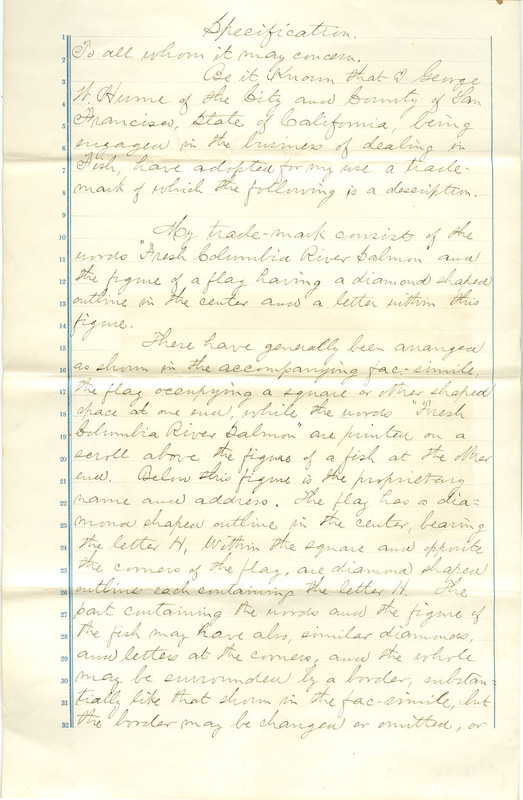 Specification.
1
2 To all whom it may concern.
3 Be it Known that I George
4 W. Hume of the City and County of San
5 Francisco, State of California, being
6 engaged in the business of dealing in
7 Fish, have adopted for my use a trade-
8 mark of which the following is a description.
9
10 My trade-mark consists of the
11 words "Fresh Columbia River Salmon" and
12 the figure of a flag having a diamond shaped
13 outline in the center and a letter within this
14 figure.
15 These have generally been arranged
16 as shown in the accompanying fac-simile,
17 the flag occupying a square or other shaped
18 space at one end, while the words "Fresh
19 Columbia River Salmon" are printed on a
20 scroll above the figure of a fish at the other
21 end. Below this figure is the proprietary
22 name and address. The flag has a dia=
23 mond shaped outline in the center, bearing
24 the letter H, Within the square and opposite
25 the corners of the flag, are diamond shaped
26 outlines each containing the letter H. The
27 part containing the words and the figure of
28 the fish may have also, similar diamonds,
29 and letters at the corners, and the whole
30 may be surrounded by a border, substan=
31 tially like that shown in the fac-simile, but
32 the border may be changed or omitted, or